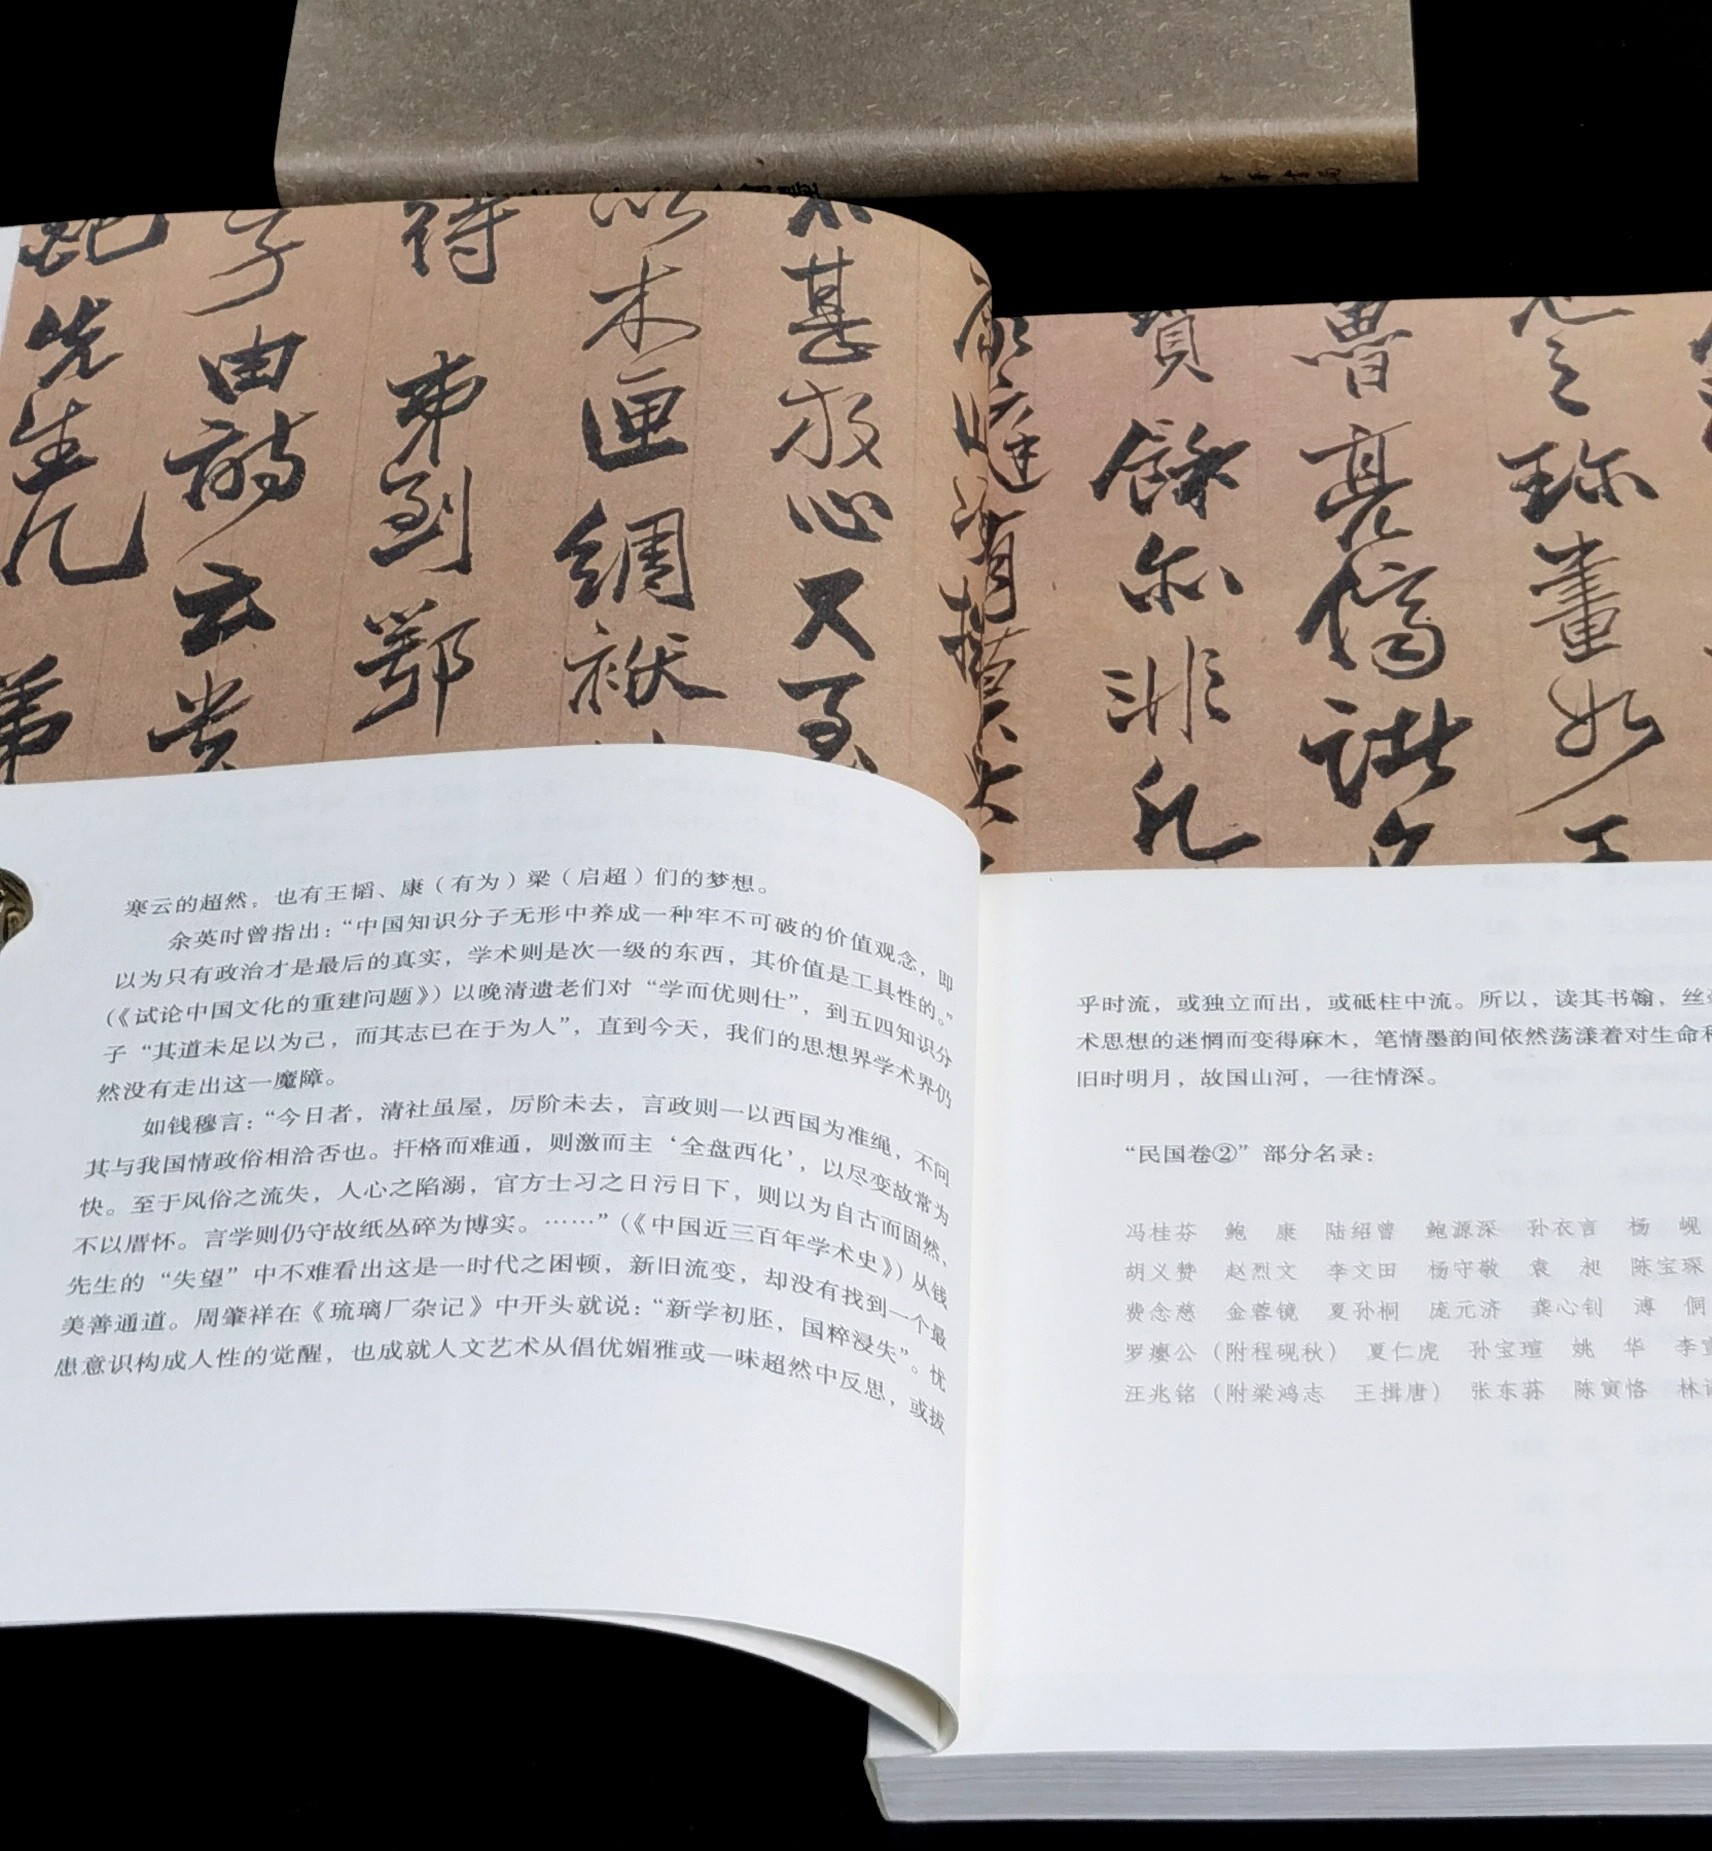 中华书局
不甚放心又恐
以木匣绸袱
待弟到鄂
子由诗云贵
先生几
弟
珎畫如王
魯亮儕諧
贊餘尔非凡
寒云的超然，也有王韬、康（有为）梁（启超）们的梦想。
余英时曾指出：“中国知识分子无形中养成一种牢不可破的价值观念，即
以为只有政治才是最后的真实，学术则是次一级的东西，其价值是工具性的。”
（《试论中国文化的重建问题》）以晚清遗老们对“学而优则仕”，到五四知识分
子“其道未足以为己，而其志已在于为人”，直到今天，我们的思想界学术界仍
然没有走出这一魔障。
如钱穆言：“今日者，清社虽屋，厉阶未去，言政则一以西国为准绳，不问
其与我国情政俗相洽否也。扞格而难通，则激而主‘全盘西化’，以尽变故常为
快。至于风俗之流失，人心之陷溺，官方士习之日污日下，则以为自古而固然，
不以厝怀。言学则仍守故纸丛碎为博实。……”（《中国近三百年学术史》）从钱
先生的“失望”中不难看出这是一时代之困顿，新旧流变，却没有找到一个最
美善通道。周肇祥在《琉璃厂杂记》中开头就说：“新学初胚，国粹浸失”。忧
患意识构成人性的觉醒，也成就人文艺术从倡优媚雅或一味超然中反思，或拔
乎时流，或独立而出，或砥柱中流。所以，读其书翰，丝
术思想的迷惘而变得麻木，笔情墨韵间依然荡漾着对生命
旧时明月，故国山河，一往情深。
“民国卷②”部分名录：
冯桂芬 鲍 康 陆绍曾 鲍源深 孙衣言 杨 岘
胡义赞 赵烈文 李文田 杨守敬 袁 昶 陈宝琛
费念慈 金蓉镜 夏孙桐 庞元济 龚心钊 溥 侗
罗瘿公（附程砚秋） 夏仁虎 孙宝瑄 姚 华 李宣
汪兆铭（附梁鸿志 王揖唐） 张东荪 陈寅恪 林